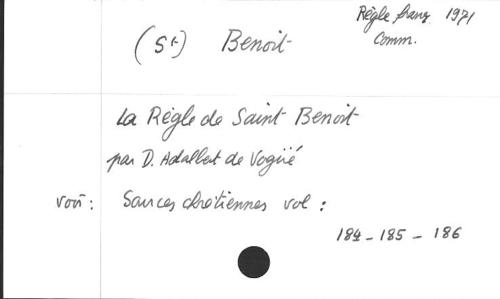 Règle franç 1971
Comm.
(St) Benoit
La Règle de Saint Benoit
par D. Adalbert de Vogüé
voir : Sources chrétiennes vol :
184 - 185 - 186